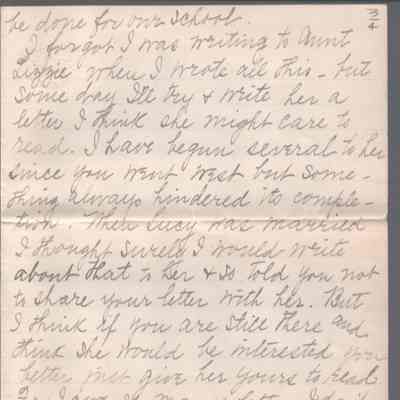 3/4
be done for our school.
I forgot I was writing to Aunt
Lizzie when I wrote all this - but
some day I'll try & write her a
letter I think she might care to
read. I have begun several to her
since you went West but some-
thing always hindered its comple-
tion. When Lucy was married
I thought surely I would write
about that to her & so told you not
to share your letter with her. But
I think if you are still there and
think she would be interested you
better just give her yours to read.